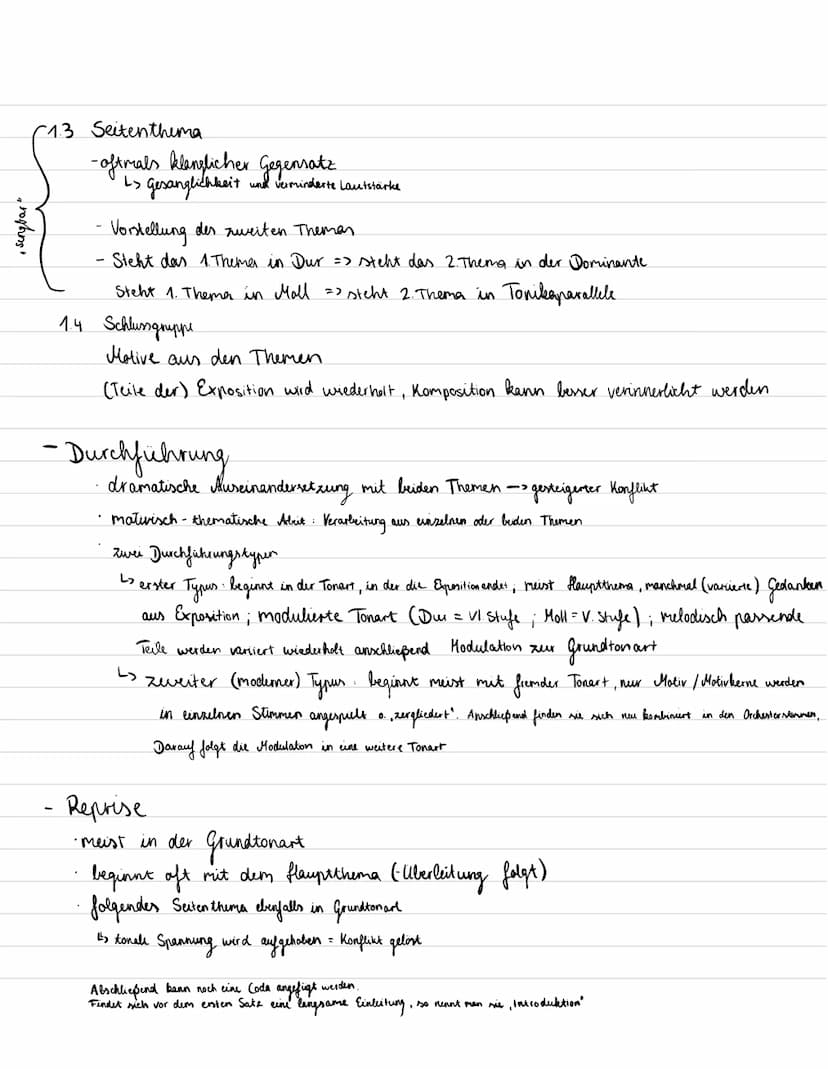 1.3 Seitenthema
-oftmals klanglicher Gegensatz
↳ Gesanglichkeit und verminderte Lautstärke
„singbar"
- Vorstellung des zweiten Themas
- Steht das 1.Thema in Dur => steht das 2.Thema in der Dominante
Steht 1. Thema in Moll => steht 2.Thema in Tonikaparallele
1.4 Schlussgruppe
Motive aus den Themen
(Teile der) Exposition wird wiederholt, Komposition kann besser verinnerlicht werden
- Durchführung
· dramatische Auseinandersetzung mit beiden Themen -> gesteigerter Konflikt
· motivisch-thematische Arbeit: Verarbeitung aus einzelnen oder beiden Themen
· zwei Durchführungstypen
↳ erster Typus: beginnt in der Tonart, in der die Exposition endet; meist Hauptthema, manchmal (variierte) Gedanken
aus Exposition; modulierte Tonart (Dur = VI Stufe; Moll = V. Stufe); melodisch passende
Teile werden variiert wiederholt anschließend Modulation zur Grundtonart
↳ zweiter (moderner) Typus: beginnt meist mit fremder Tonart, nur Motiv / Motivkerne werden
in einzelnen Stimmen angespielt o. „zergliedert". Anschließend finden sie sich neu kombiniert in den Orchesterstimmen,
Darauf folgt die Modulation in eine weitere Tonart
- Reprise
· meist in der Grundtonart
· beginnt oft mit dem Hauptthema (-Überleitung folgt)
· folgendes Seitenthema ebenfalls in Grundtonart
↳ tonale Spannung wird aufgehoben = Konflikt gelöst
Abschließend kann noch eine Coda angefügt werden.
Findet sich vor dem ersten Satz eine langsame Einleitung, so nennt man sie „Introduktion"